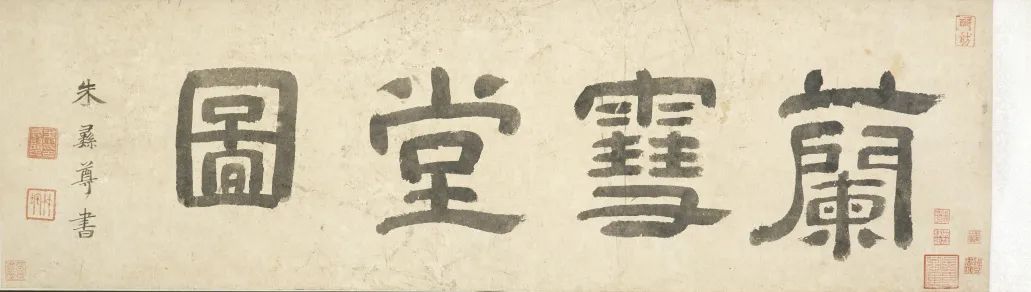 蘭雪堂圖
朱彝尊書